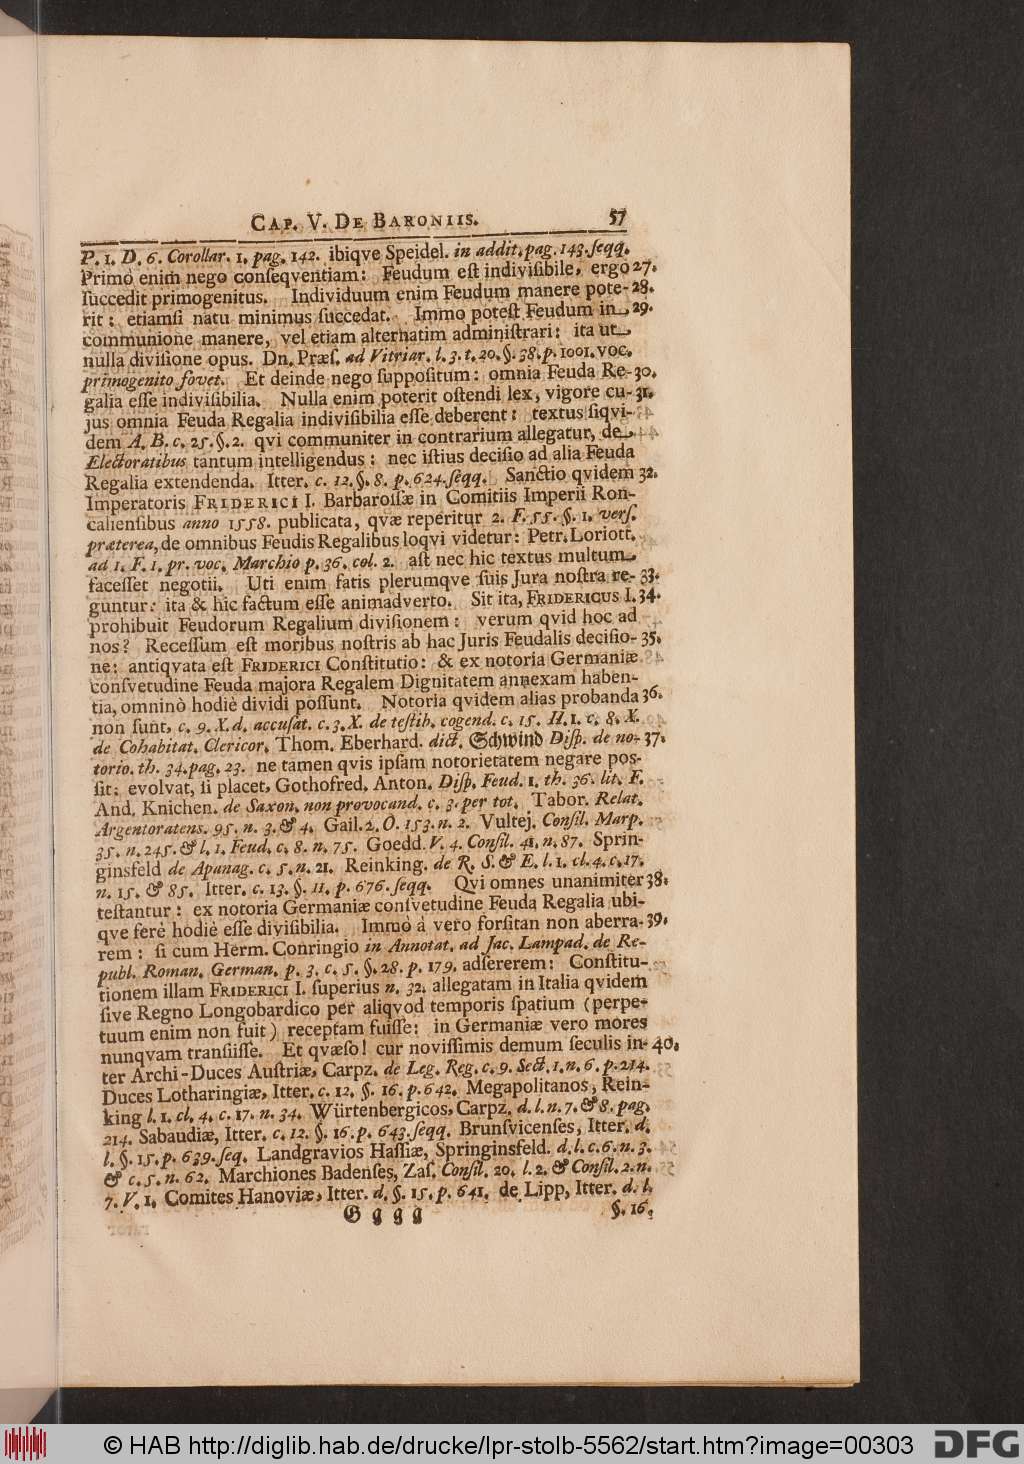 CAP. V. DE BARONIIS. 57
P. 1. D. 6. Corollar. 1. pag. 142. ibiqve Speidel. in addit. pag. 143. ſeqq.
Primò enim nego conſeqventiam: Feudum eſt indiviſibile, ergo 27.
ſuccedit primogenitus. Individuum enim Feudum manere pote- 28.
rit: etiamſi natu minimus ſuccedat. Immo poteſt Feudum in 29.
communione manere, vel etiam alternatim adminiſtrari: ita ut
nulla diviſione opus. Dn. Præſ. ad Vitriar. l. 3. t. 20. §. 38. p. 1001. voc.
primogenito fovet. Et deinde nego ſuppoſitum: omnia Feuda Re- 30.
galia eſſe indiviſibilia. Nulla enim poterit oſtendi lex, vigore cu- 31.
jus omnia Feuda Regalia indiviſibilia eſſe deberent: textus ſiqvi-
dem A. B. c. 25. §. 2. qvi communiter in contrarium allegatur, de
Electoratibus tantum intelligendus: nec iſtius deciſio ad alia Feuda
Regalia extendenda. Itter. c. 12. §. 8. p. 624. ſeqq. Sanctio qvidem 32.
Imperatoris FRIDERICI I. Barbaroſſæ in Comitiis Imperii Ron-
calienſibus anno 1558. publicata, qvæ reperitur 2. F. 55. §. 1. verſ.
præterea, de omnibus Feudis Regalibus loqvi videtur: Petr. Loriott.
ad 1. F. 1. pr. voc. Marchio p. 36. col. 2. aſt nec hic textus multum
faceſſet negotii. Uti enim fatis plerumqve ſuis Jura noſtra re- 33.
guntur: ita & hic factum eſſe animadverto. Sit ita, FRIDERICUS I. 34.
prohibuit Feudorum Regalium diviſionem: verum qvid hoc ad
nos? Receſſum eſt moribus noſtris ab hac Juris Feudalis deciſio- 35.
ne: antiqvata eſt FRIDERICI Conſtitutio: & ex notoria Germaniæ
conſvetudine Feuda majora Regalem Dignitatem annexam haben-
tia, omninò hodiè dividi poſſunt. Notoria qvidem alias probanda 36.
non ſunt, c. 9. X. d. accuſat. c. 3. X. de teſtib. cogend. c. 15. H. 1. c. 8. X.
de Cohabitat. Clericor. Thom. Eberhard. dict. Schwind Diſp. de no- 37.
torio. th. 34. pag. 23. ne tamen qvis ipſam notorietatem negare pos-
ſit: evolvat, ſi placet, Gothofred. Anton. Diſp. Feud. 1. th. 36. lit. F.
And. Knichen. de Saxon. non provocand. c. 3. per tot. Tabor. Relat.
Argentoratens. 95. n. 3. & 4. Gail. 2. O. 153. n. 2. Vultej. Conſil. Marp.
35. n. 245. & l. 1. Feud. c. 8. n. 75. Goedd. V. 4. Conſil. 41. n. 87. Sprin-
ginsfeld de Apanag. c. 5. n. 21. Reinking. de R. S. & E. l. 1. cl. 4. c. 17.
n. 15. & 85. Itter. c. 13. §. 11. p. 676. ſeqq. Qvi omnes unanimiter 38.
teſtantur: ex notoria Germaniæ conſvetudine Feuda Regalia ubi-
qve ferè hodiè eſſe diviſibilia. Immò à vero forſitan non aberra- 39.
rem: ſi cum Herm. Conringio in Annotat. ad Jac. Lampad. de Re-
publ. Roman. German. p. 3. c. 5. §. 28. p. 179. adſererem: Conſtitu-
tionem illam FRIDERICI I. ſuperius n. 32. allegatam in Italia qvidem
ſive Regno Longobardico per aliqvod temporis ſpatium (perpe-
tuum enim non fuit) receptam fuiſſe: in Germaniæ vero mores
nunqvam tranſiiſſe. Et qvæſo! cur noviſſimis demum ſeculis in- 40.
ter Archi-Duces Auſtriæ, Carpz. de Leg. Reg. c. 9. Sect. 1. n. 6. p. 214.
Duces Lotharingiæ, Itter. c. 12. §. 16. p. 642. Megapolitanos, Rein-
king l. 1. cl. 4. c. 17. n. 34. Würtenbergicos, Carpz. d. l. n. 7. & 8. pag.
214. Sabaudiæ, Itter. c. 12. §. 16. p. 643. ſeqq. Brunſvicenſes, Itter. d.
l. §. 15. p. 639. ſeq. Landgravios Haſſiæ, Springinsfeld. d. l. c. 6. n. 3.
& c. 5. n. 62. Marchiones Badenſes, Zaſ. Conſil. 20. l. 2. & Conſil. 2. n.
7. V. 1. Comites Hanoviæ, Itter. d. §. 15. p. 641. de Lipp, Itter. d. l.
G g g g §. 16.
© HAB http://diglib.hab.de/drucke/lpr-stolb-5562/start.htm?image=00303 DFG